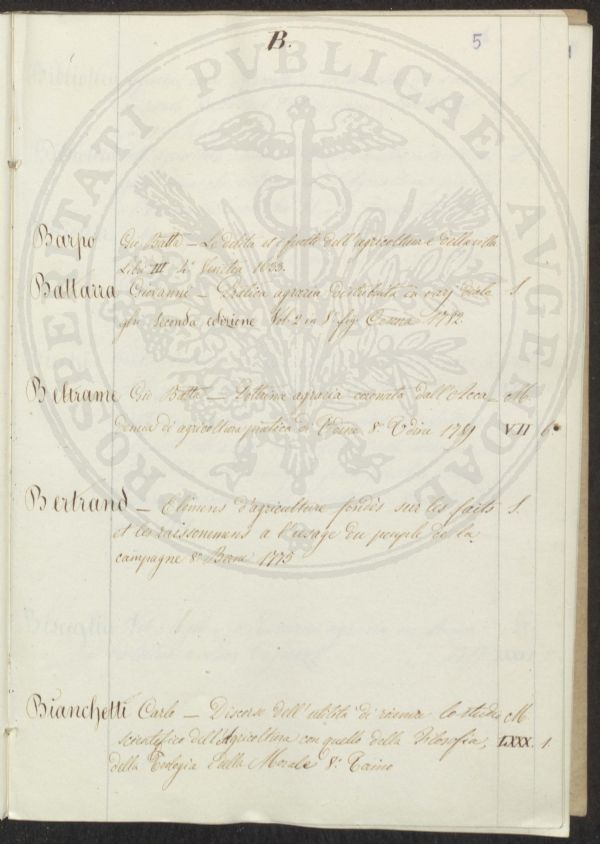 B. 5
PROSPERITATI PVBLICAE AVGENDAE
Barpo Gio Batta — Le delitie et frutti dell'agricoltura e della villa
Libri III 4° Venetia 1633.
Battarra Giovanni — Pratica agraria distribuita in varj dialo S.
ghi seconda edizione Vol. 2 in 8° fig. Cesena 1782.
Beltrame Gio Batta — Dottrina agraria coronata dall'Acca- M.
demia di agricoltura pratica di Udine 8° Udine 1789 VII 6
Bertrand — Elimens d'agriculture fondés sur les faits S.
et les raisonemens a l'usage du peuple de la
campagne 8° Berne 1775
Bianchetti Carlo — Discorso dell'utilità di riunire lo studio M
scientifico dell'Agricoltura con quello della Filosofia, LXXX. 1.
della Teologia e della Morale 8°